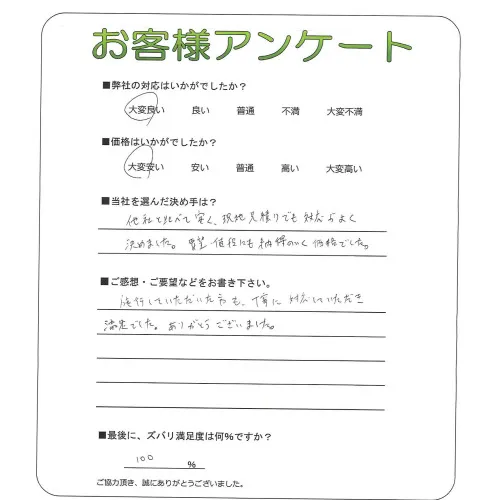 お客様アンケート
■弊社の対応はいかがでしたか？
大変良い 良い 普通 不満 大変不満
■価格はいかがでしたか？
大変安い 安い 普通 高い 大変高い
■当社を選んだ決め手は？
他社と比べて安く、現地見積りでも対応がよく
決めました。買い値段にも納得のいく価格でした。
■ご感想・ご要望などをお書き下さい。
施行していただいた方も、丁寧に対応していただき
満足でした。ありがとうございました。
■最後に、ズバリ満足度は何％ですか？
100 ％
ご協力頂き、誠にありがとうございました。